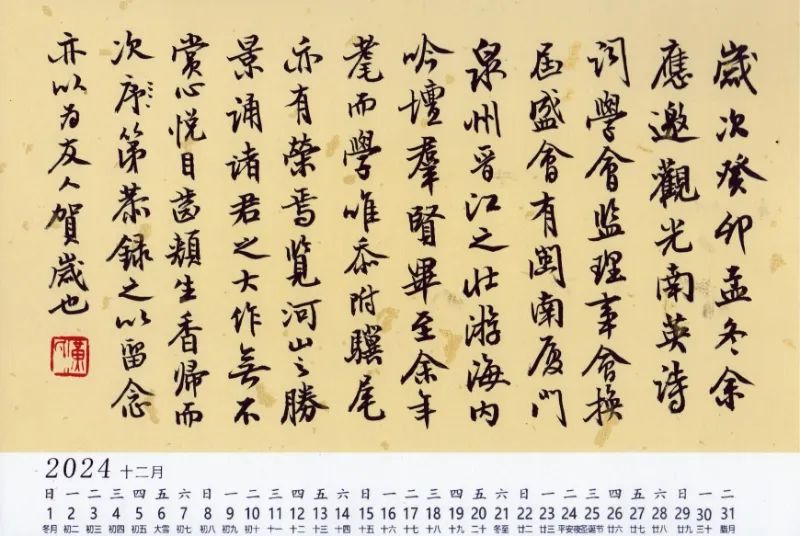 歲次癸卯孟冬余
應邀觀光南英詩
詞學會監理事會換
屆盛會有閩南厦門
泉州晋江之壯游海内
吟壇羣賢畢至余年
耄而學唯忝附驥尾
亦有榮焉覽河山之勝
景誦諸君之大作無不
賞心悅目齒頰生香歸而
次序第恭録之以留念
亦以为友人賀歲也
2024 十二月
日 一 二 三 四 五 六 日 一 二 三 四 五 六 日 一 二 三 四 五 六 日 一 二 三 四 五 六 日 一 二
1 2 3 4 5 6 7 8 9 10 11 12 13 14 15 16 17 18 19 20 21 22 23 24 25 26 27 28 29 30 31
冬月 初二 初三 初四 初五 大雪 初七 初八 初九 初十 十一 十二 十三 十四 十五 十六 十七 十八 十九 二十 冬至 廿二 廿三 平安夜 圣诞节 廿六 廿七 廿八 廿九 三十 腊月